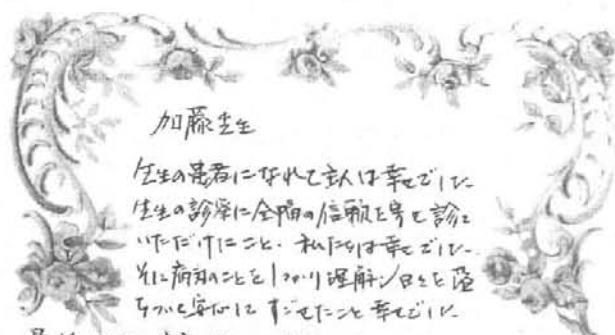 加藤先生
先生の患者になれて主人は幸せでした
先生の診察に全幅の信頼を寄せ診て
いただけたこと、私たちは幸せでした
病気のことをしっかり理解し日々を
安心して すごせたこと幸せでした